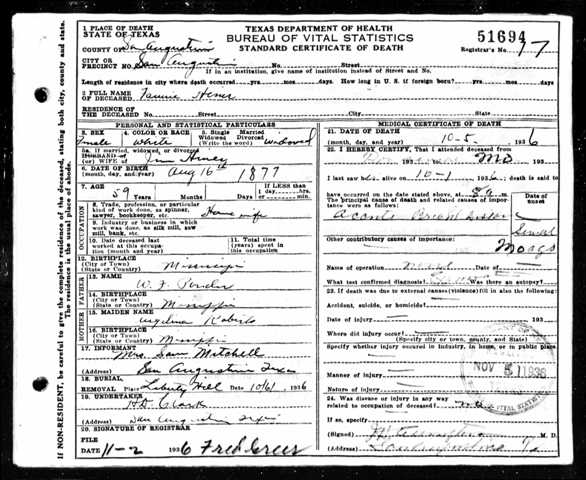 1 PLACE OF DEATH
STATE OF TEXAS
TEXAS DEPARTMENT OF HEALTH
BUREAU OF VITAL STATISTICS
STANDARD CERTIFICATE OF DEATH
51694
COUNTY OF San Augustine
Registrar's No. 17
CITY OR
PRECINCT NO. San Augustine No. Street
If in an institution, give name of institution instead of Street and No.
Length of residence in city where death occurred yrs. mos. days. How long in U. S. if foreign born? yrs. mos. days
2 FULL NAME
OF DECEASED
RESIDENCE OF
THE DECEASED No. Street City State
PERSONAL AND STATISTICAL PARTICULARS
3. SEX 4. COLOR OR RACE 5. Single Married
Widowed Divorced
(Write the word)
Female White Widowed
5a. If married, widowed or divorced
HUSBAND of
(or) WIFE of Jim
6. DATE OF BIRTH
(month, day, and year) Aug 16th 1877
7. AGE 59 Years Months Days
IF LESS than
1 day, hrs.
or min
OCCUPATION
8. Trade, profession, or particular
kind of work done, as spinner,
sawyer, bookkeeper, etc. House wife
9. Industry or business in which
work was done, as silk mill, saw
mill, bank, etc.
10. Date deceased last
worked at this occupation
(month and year)
11. Total time (years)
spent in this
occupation
12. BIRTHPLACE
(City or Town)
(State or Country) Mississippi
FATHER
13. NAME W. F.
14. BIRTHPLACE
(City or Town)
(State or Country) Mississippi
MOTHER
15. MAIDEN NAME Angelina Roberts
16. BIRTHPLACE
(City or Town)
(State or Country) Mississippi
17. INFORMANT
Mrs. Sam Mitchell
(Address) San Augustine Texas
18. BURIAL,
REMOVAL Place Liberty Hill Date 10/6/1936
19. UNDERTAKER
H.D. Clark
(Address) San Augustine Texas
20. SIGNATURE OF REGISTRAR
FILE
DATE 11-2 1936 Fred Greer
MEDICAL CERTIFICATE OF DEATH
21. DATE OF DEATH
(month, day, and year) 10-5, 1936
22. I HEREBY CERTIFY, That I attended deceased
from 193 to MD 193
I last saw h alive on 10-1 1936; death is said to
have occurred on the date stated above at m.
The principal cause of death and related causes of importance
were as follows:
Date of
onset
Other contributory causes of importance:
Several
Name of operation Date of
What test confirmed diagnosis? Was there an autopsy?
23. If death was due to external causes (violence) fill in also the following:
Accident, suicide, or homicide?
Date of injury 193
Where did injury occur?
(Specify city or town, county, and State)
Specify whether injury occurred in industry, in home, or in public place.
Manner of injury
Nature of injury
NOV 1936
VITAL STATISTICS
24. Was disease or injury in any way
related to occupation of deceased?
If so, specify
(Signed) M. D.
(Address)
If NON-RESIDENT, be careful to give the complete residence of the deceased, stating both city, county and state.
The residence is the usual place of abode.